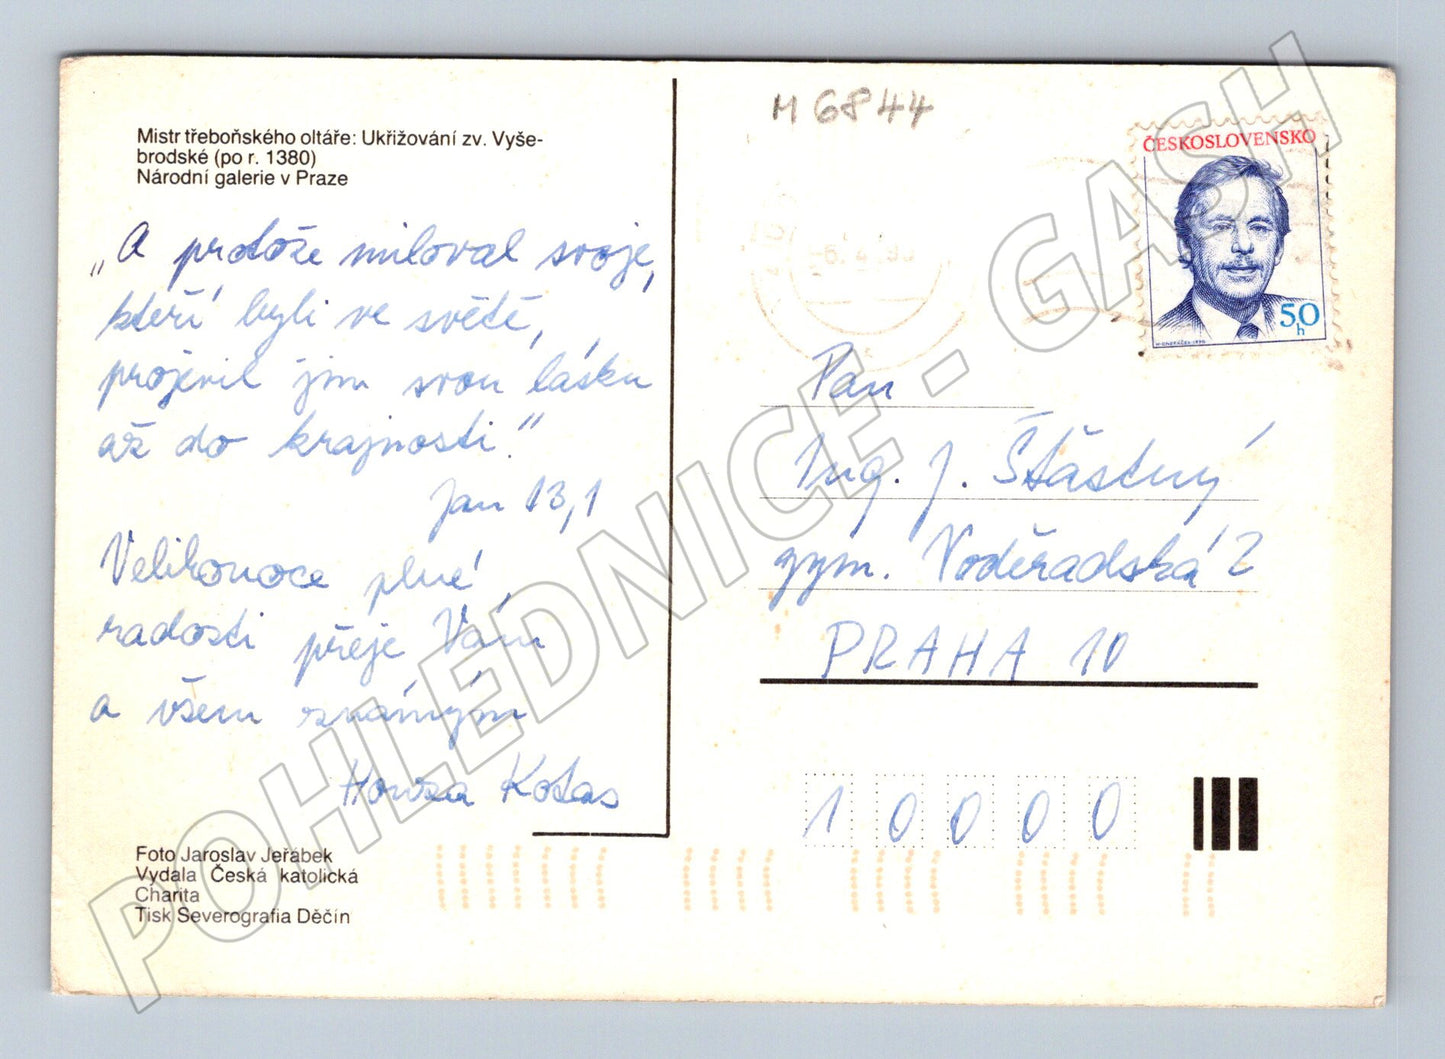 Mistr třeboňského oltáře: Ukřižování zv. Vyše-
brodské (po r. 1380)
Národní galerie v Praze
„A protože miloval svoje,
kteří byli ve světě,
projevil jim svou lásku
až do krajnosti."
Jan 13,1
Velikonoce plné
radosti přeje Vám
a všem známým
Honza Kotas
Foto Jaroslav Jeřábek
Vydala Česká katolická
Charita
Tisk Severografia Děčín
M 6844
ČESKOSLOVENSKO
50
h
Pan
Ing. J. Šťástný
gym. Voděradská 2
PRAHA 10
10000
POHLEDNICE - GASH